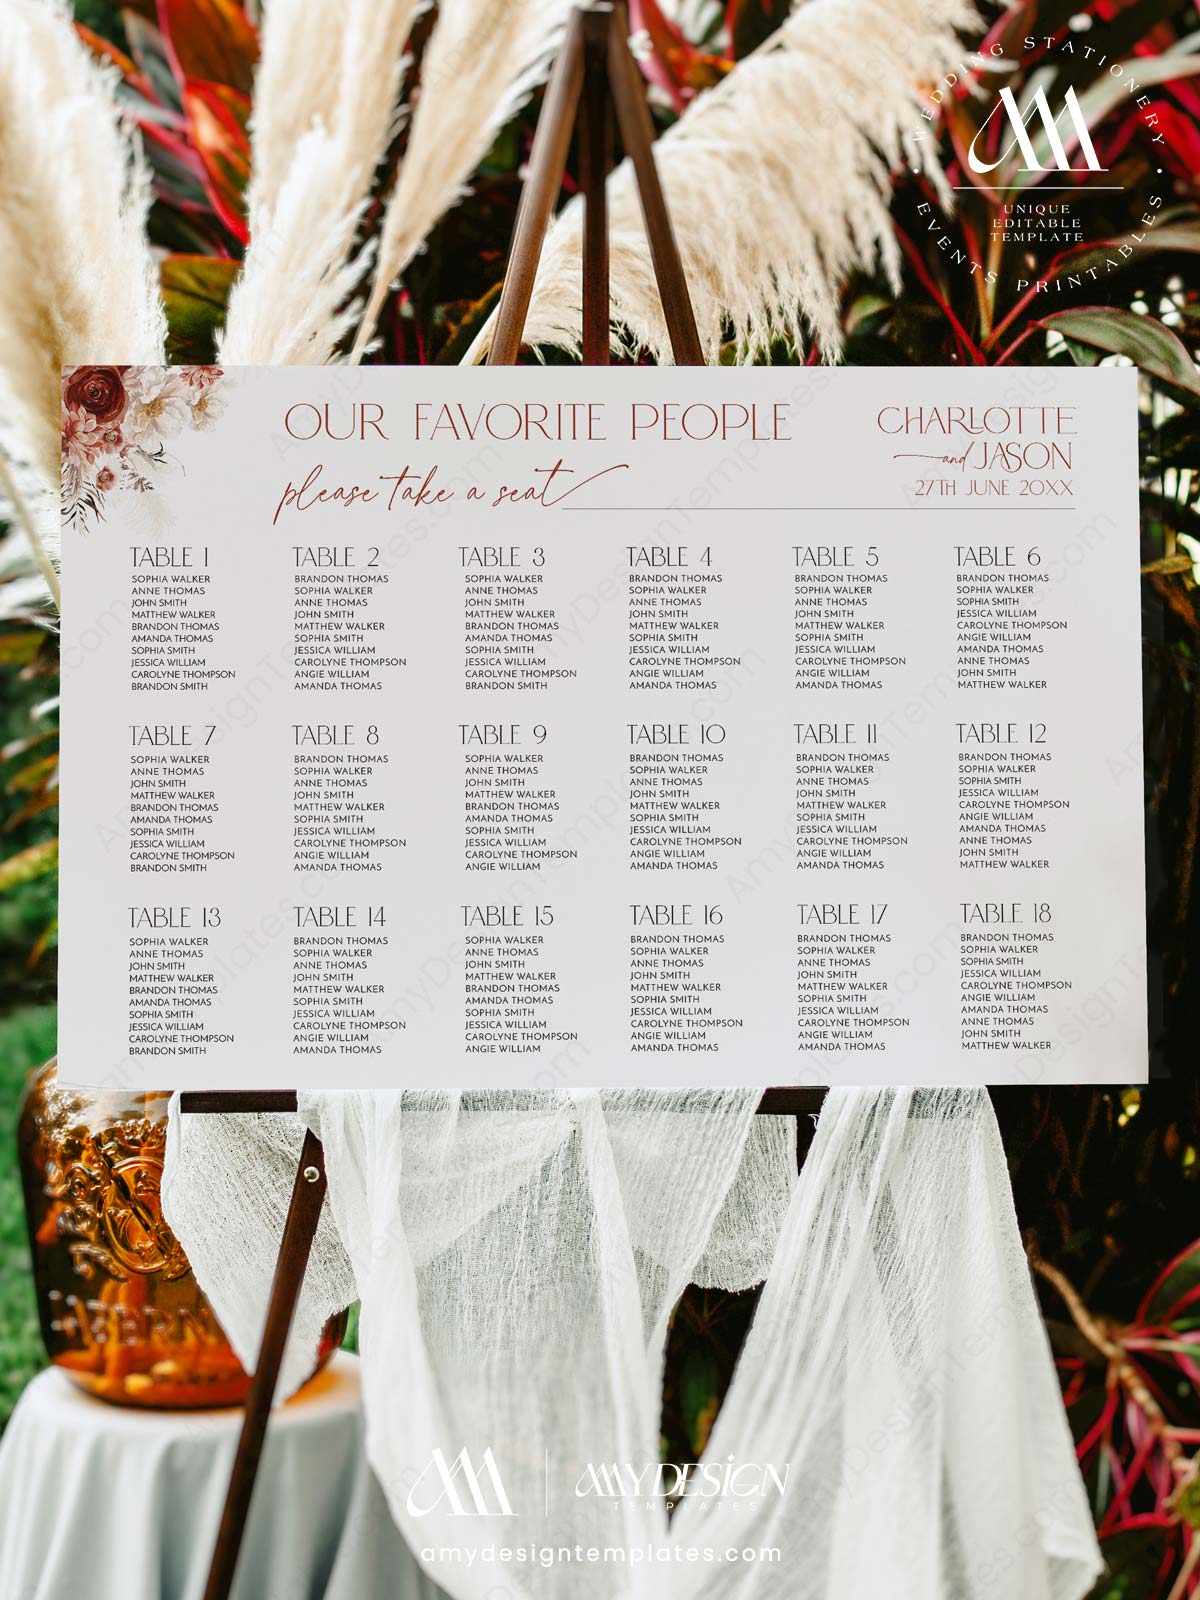 WEDDING STATIONERY
UNIQUE
EDITABLE
TEMPLATE
EVENTS PRINTABLES
OUR FAVORITE PEOPLE
please take a seat
CHARLOTTE
and JASON
27TH JUNE 20XX
TABLE 1
SOPHIA WALKER
ANNE THOMAS
JOHN SMITH
MATTHEW WALKER
BRANDON THOMAS
AMANDA THOMAS
SOPHIA SMITH
JESSICA WILLIAM
CAROLYNE THOMPSON
BRANDON SMITH
TABLE 2
BRANDON THOMAS
SOPHIA WALKER
ANNE THOMAS
JOHN SMITH
MATTHEW WALKER
SOPHIA SMITH
JESSICA WILLIAM
CAROLYNE THOMPSON
ANGIE WILLIAM
AMANDA THOMAS
TABLE 3
SOPHIA WALKER
ANNE THOMAS
JOHN SMITH
MATTHEW WALKER
BRANDON THOMAS
AMANDA THOMAS
SOPHIA SMITH
JESSICA WILLIAM
CAROLYNE THOMPSON
BRANDON SMITH
TABLE 4
BRANDON THOMAS
SOPHIA WALKER
ANNE THOMAS
JOHN SMITH
MATTHEW WALKER
SOPHIA SMITH
JESSICA WILLIAM
CAROLYNE THOMPSON
ANGIE WILLIAM
AMANDA THOMAS
TABLE 5
BRANDON THOMAS
SOPHIA WALKER
ANNE THOMAS
JOHN SMITH
MATTHEW WALKER
SOPHIA SMITH
JESSICA WILLIAM
CAROLYNE THOMPSON
ANGIE WILLIAM
AMANDA THOMAS
TABLE 6
BRANDON THOMAS
SOPHIA WALKER
SOPHIA SMITH
JESSICA WILLIAM
CAROLYNE THOMPSON
ANGIE WILLIAM
AMANDA THOMAS
ANNE THOMAS
JOHN SMITH
MATTHEW WALKER
TABLE 7
SOPHIA WALKER
ANNE THOMAS
JOHN SMITH
MATTHEW WALKER
BRANDON THOMAS
AMANDA THOMAS
SOPHIA SMITH
JESSICA WILLIAM
CAROLYNE THOMPSON
BRANDON SMITH
TABLE 8
BRANDON THOMAS
SOPHIA WALKER
ANNE THOMAS
JOHN SMITH
MATTHEW WALKER
SOPHIA SMITH
JESSICA WILLIAM
CAROLYNE THOMPSON
ANGIE WILLIAM
AMANDA THOMAS
TABLE 9
SOPHIA WALKER
ANNE THOMAS
JOHN SMITH
MATTHEW WALKER
BRANDON THOMAS
AMANDA THOMAS
SOPHIA SMITH
JESSICA WILLIAM
CAROLYNE THOMPSON
ANGIE WILLIAM
TABLE 10
BRANDON THOMAS
SOPHIA WALKER
ANNE THOMAS
JOHN SMITH
MATTHEW WALKER
SOPHIA SMITH
JESSICA WILLIAM
CAROLYNE THOMPSON
ANGIE WILLIAM
AMANDA THOMAS
TABLE 11
BRANDON THOMAS
SOPHIA WALKER
ANNE THOMAS
JOHN SMITH
MATTHEW WALKER
SOPHIA SMITH
JESSICA WILLIAM
CAROLYNE THOMPSON
ANGIE WILLIAM
AMANDA THOMAS
TABLE 12
BRANDON THOMAS
SOPHIA WALKER
SOPHIA SMITH
JESSICA WILLIAM
CAROLYNE THOMPSON
ANGIE WILLIAM
AMANDA THOMAS
ANNE THOMAS
JOHN SMITH
MATTHEW WALKER
TABLE 13
SOPHIA WALKER
ANNE THOMAS
JOHN SMITH
MATTHEW WALKER
BRANDON THOMAS
AMANDA THOMAS
SOPHIA SMITH
JESSICA WILLIAM
CAROLYNE THOMPSON
BRANDON SMITH
TABLE 14
BRANDON THOMAS
SOPHIA WALKER
ANNE THOMAS
JOHN SMITH
MATTHEW WALKER
SOPHIA SMITH
JESSICA WILLIAM
CAROLYNE THOMPSON
ANGIE WILLIAM
AMANDA THOMAS
TABLE 15
SOPHIA WALKER
ANNE THOMAS
JOHN SMITH
MATTHEW WALKER
BRANDON THOMAS
AMANDA THOMAS
SOPHIA SMITH
JESSICA WILLIAM
CAROLYNE THOMPSON
ANGIE WILLIAM
TABLE 16
BRANDON THOMAS
SOPHIA WALKER
ANNE THOMAS
JOHN SMITH
MATTHEW WALKER
SOPHIA SMITH
JESSICA WILLIAM
CAROLYNE THOMPSON
ANGIE WILLIAM
AMANDA THOMAS
TABLE 17
BRANDON THOMAS
SOPHIA WALKER
ANNE THOMAS
JOHN SMITH
MATTHEW WALKER
SOPHIA SMITH
JESSICA WILLIAM
CAROLYNE THOMPSON
ANGIE WILLIAM
AMANDA THOMAS
TABLE 18
BRANDON THOMAS
SOPHIA WALKER
SOPHIA SMITH
JESSICA WILLIAM
CAROLYNE THOMPSON
ANGIE WILLIAM
AMANDA THOMAS
ANNE THOMAS
JOHN SMITH
MATTHEW WALKER
AMY DESIGN
TEMPLATES
amydesigntemplates.com